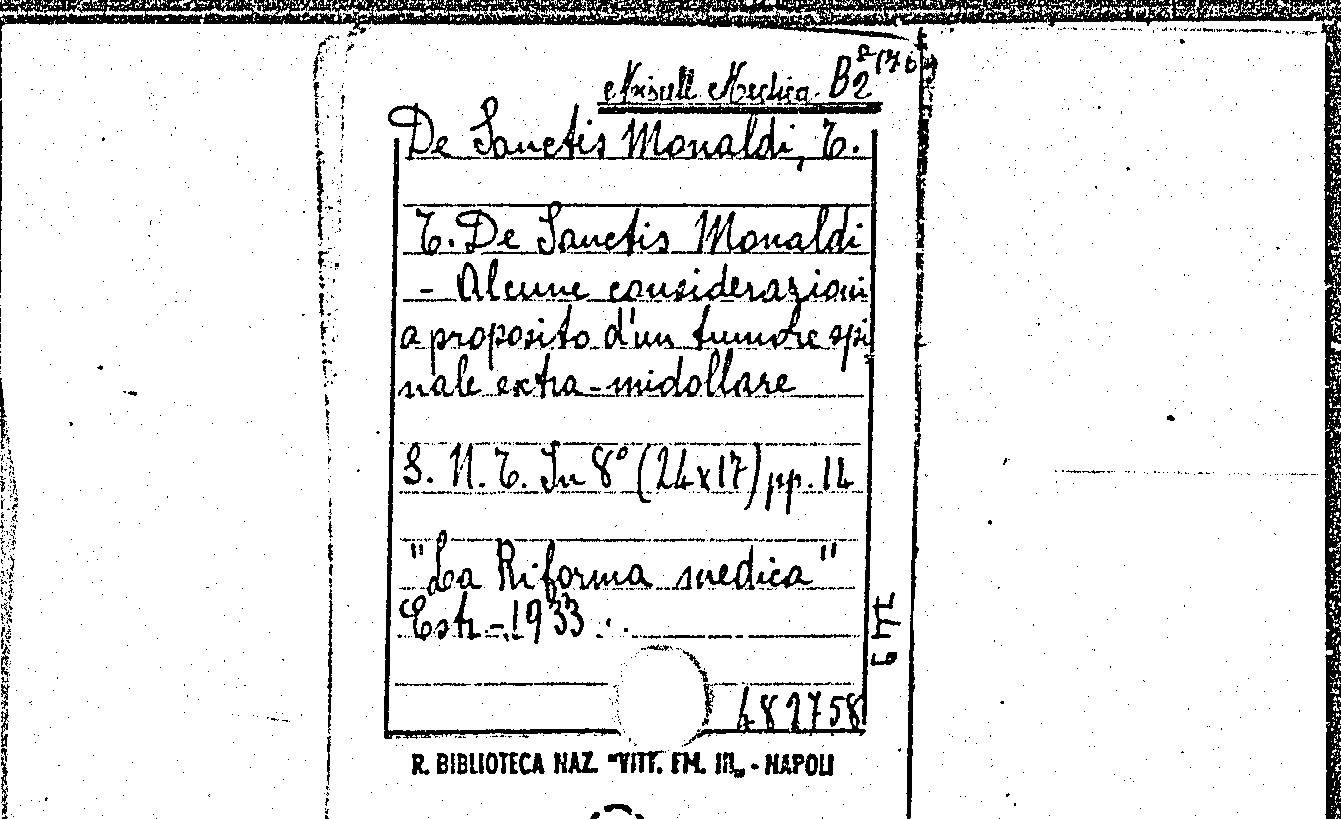 Miscell Medica. B2
De Sanctis Monaldi, T.
T. De Sanctis Monaldi
- Alcune considerazioni
a proposito d'un tumore spi
nale extra-midollare
S. N. T. In 8° (24x17) pp. 14
"La Riforma medica"
Estr. - 1933
482758
R. BIBLIOTECA NAZ. "VITT. EM. III„ - NAPOLI